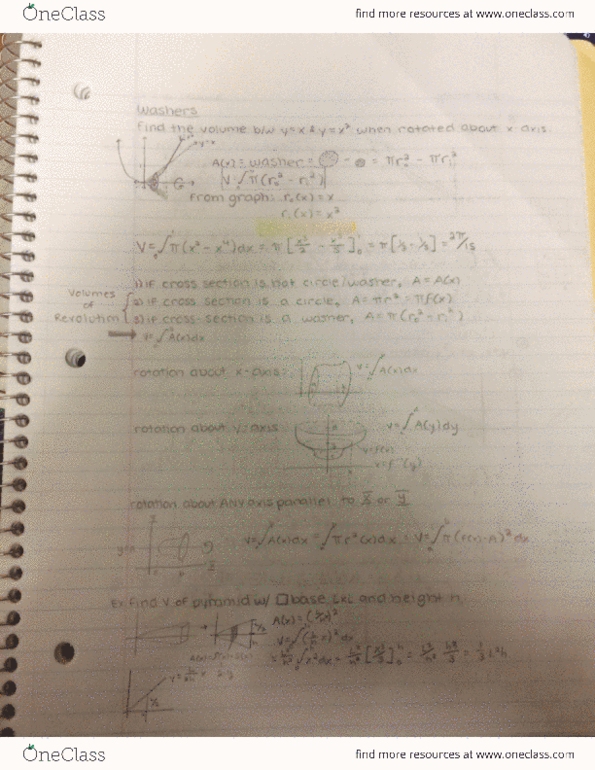 OneClass
find more resources at www.oneclass.com
Washers
Find the volume b/w y=x & y=x² when rotated about x axis
A(x) = washer = - = πr₀² - πr₁²
V=∫π(r₀² - r₁²)
From graph: r₀(x) = x
r₁(x) = x²
V=∫π(x² - x⁴)dx = π[ - ]₀¹ = π[⅓ - ⅕] = 2π/15
1) if cross section is not circle/washer, A = A(x)
Volumes of Revolution
2) if cross section is a circle, A = πr² = πf(x)
3) if cross-section is a washer, A = π(r₀² - r₁²)
V=∫A(x)dx
rotation about x-axis: V=∫A(x)dx
rotation about y-axis V=∫A(y)dy
rotation about ANY axis parallel to X or Y
V=∫A(x)dx = ∫πr²(x)dx V=∫π(f(x)-A)²dx
Ex Find V of pyramid w/ □ base, LxL and height h
A(x) =
= ⅓L²h
OneClass
find more resources at www.oneclass.com